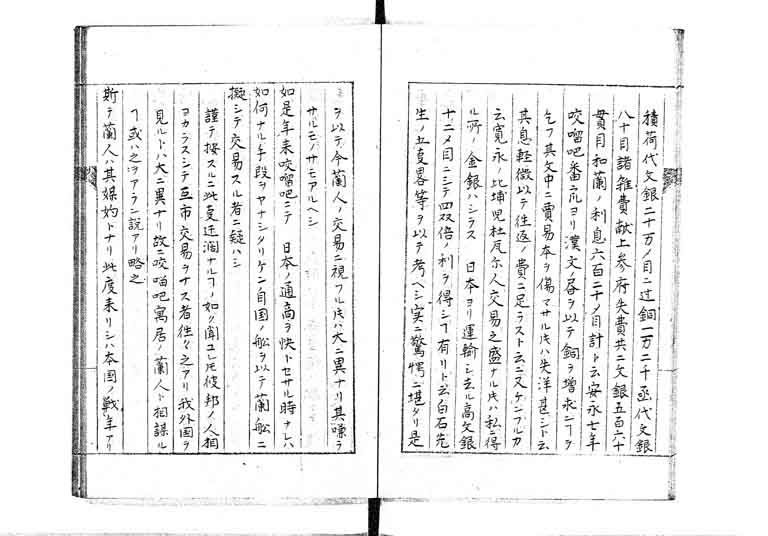 積荷代文銀二十万ノ目ニ辻銅一万二千丞代文銀
八十目諸雑費献上参府失費共ニ文銀五百六十
貫目和蘭ノ利息六百二十ノ目計ト云安永七年
咬𠺕吧番ニ爪ヨリ漢文ノ昏ヲ以テ銅ヲ増求ニヿヲ
乞フ其文中ニ賣易本ヲ傷マサル片ハ失洋甚シト云
其息軽微以テ往返ノ費ニ足ラスト云ニ又ケンフルカ
云寛永ノ比埔児杜瓦尓人交易之盛ナル片ハ私ニ得
ル所ノ金銀ハシラス 日本ヨリ運輸シ去ル高文銀
十二メ目ニシテ四双倍ノ利ヲ得シヿ有リト云白石先
生ノ五夏畧等ヲ以テ考ヘシ実ニ驚愕ニ堪タリ是
ヲ以テ今蘭人ノ交易ニ視フル片ハ大ニ異ナリ其嫌ヲ
サルモノサモアルヘシ
如是年来咬𠺕吧ニテ 日本ノ通商ヲ快トセサル時ナレハ
如何ナル手段ヲヤナシタリケン自国ノ舩ヲ以テ蘭舩ニ
擬シテ交易スル者ニ疑ハシ
謹テ按スルニ此夏迂濶ナルヿノ如ク聞ユレ𪜈彼邦ノ人相
ヨカラスシテ互市交易ヲナス者徃々之アリ我外国ヲ
見ルトハ大ニ異ナリ故ニ咬𠺕吧寓居ノ蘭人ト相謀ル
ヿ或ハ之ヲアラン説アリ略之
斯テ蘭人ハ其媒妁トナリ此度来リシハ本国ノ戦争アリ